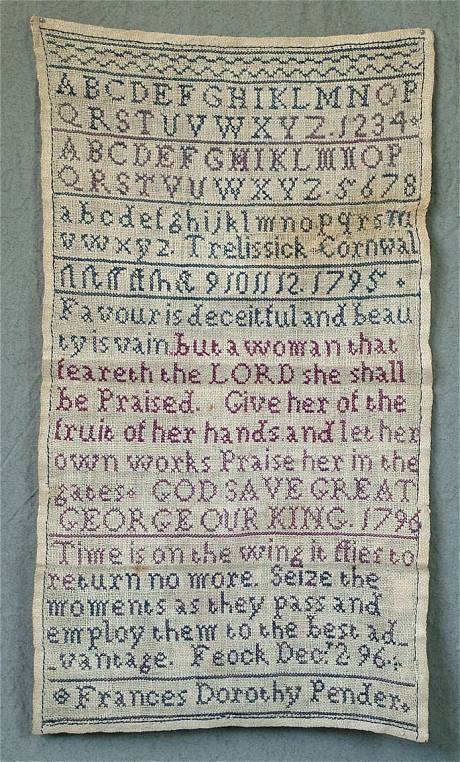 ABCDEFGHIKLMNOP
QRSTUVWXYZ.1234
ABCDEFGHIKLMNOP
QRSTVUWXYZ.5678
abcdefghijklmnopqrsm
vwxyz. Trelissick Cornwal
& 9 10 11 12. 1795
Favour is deceitful and beau
ty is vain. but a woman that
feareth the LORD she shall
be Praised. Give her of the
fruit of her hands and let her
own works Praise her in the
gates. GOD SAVE GREAT
GEORGE OUR KING. 1796
Time is on the wing it flies to
return no more. Seize the
moments as they pass and
employ them to the best ad_
_vantage. Feock Decr 2 96
Frances Dorothy Pender.